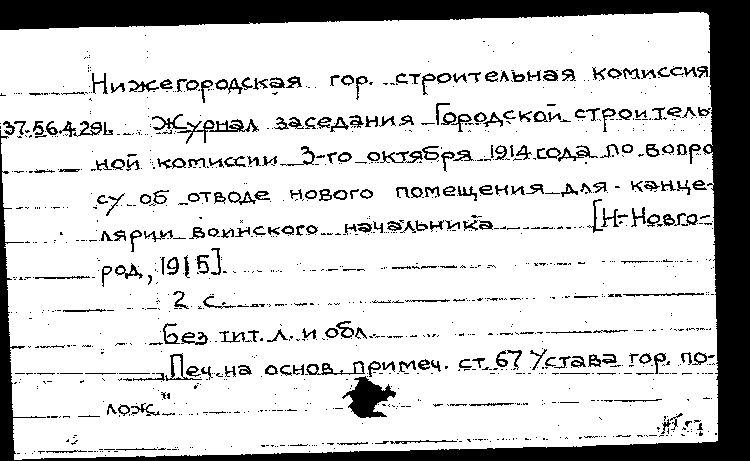 Нижегородская гор. строительная комиссия
37.56.4.291. Журнал заседания Городской строитель
ной комиссии 3-го октября 1914 года по вопро
су об отводе нового помещения для канце-
лярии воинского начальника [Н-Новго-
род, 1915]
2 с.
Без тит. л. и обл.
„Печ. на основ. примеч. ст. 67 Устава гор. по-
лож."
57